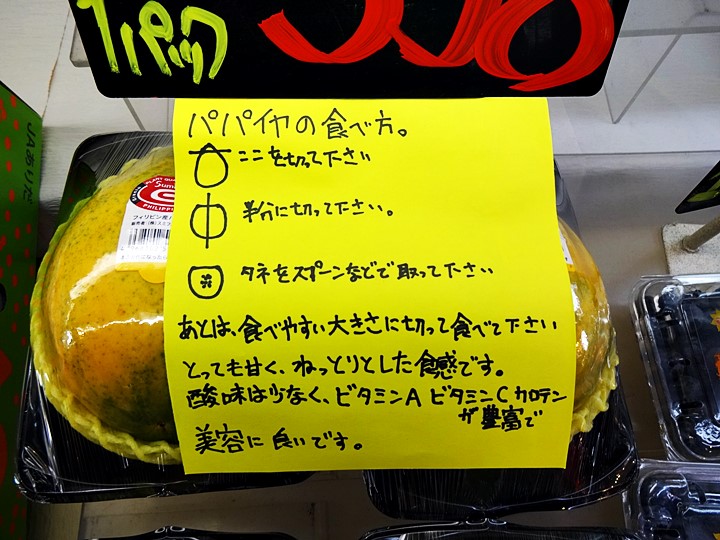 1パック
パパイヤの食べ方。
ここを切って下さい
半分に切って下さい。
タネをスプーンなどで取って下さい
あとは、食べやすい大きさに切って食べて下さい
とっても甘く、ねっとりとした食感です。
酸味は少なく、ビタミンA ビタミンC カロテン
が豊富で
美容に良いです。
JAありだ
PHILIPP
フィリピン産